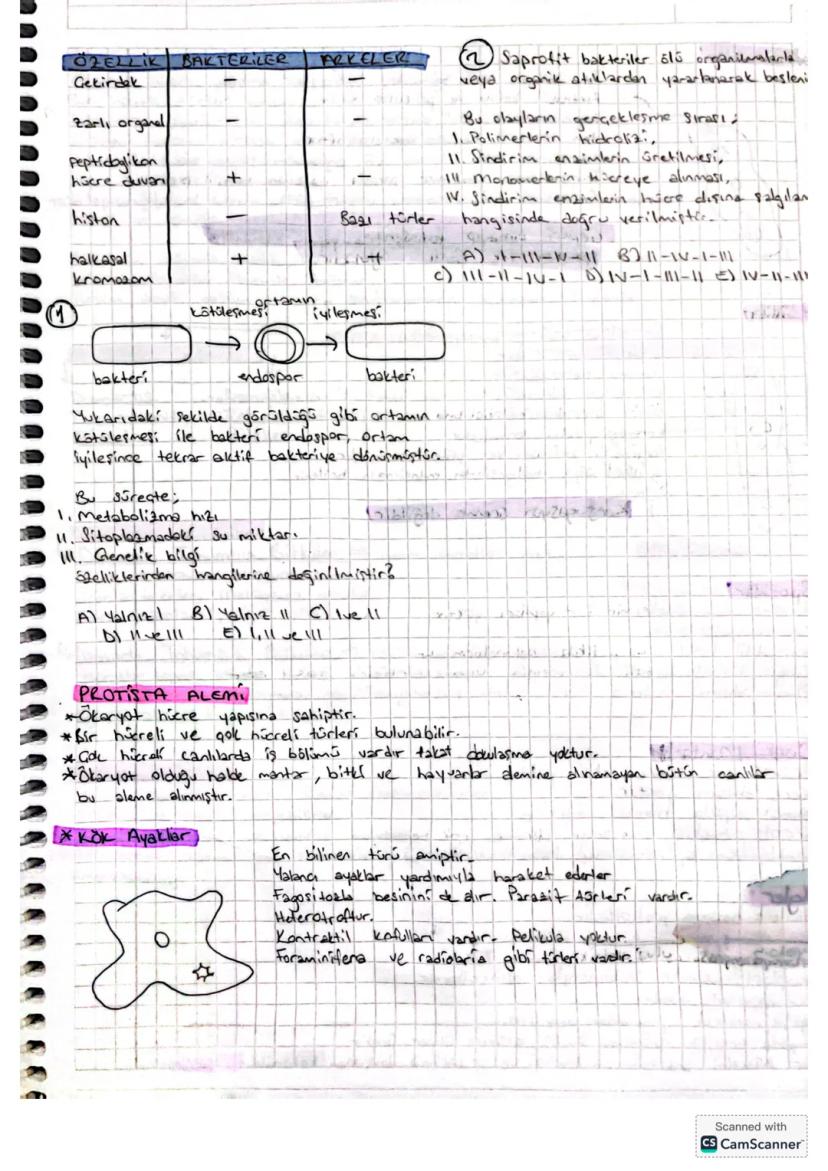 ÖZELLİK BAKTERİLER ARKELER
Çekirdek - -
Zarlı organel - -
peptidoglikon
hücre duvarı + -
histon - Bazı türler
halkasal + +
kromozom
2 Saprofit bakteriler ölü organizmalarla
veya organik atıklardan yararlanarak besleni
Bu olayların gerçekleşme sırası;
I. Polimerlerin hidrolizi,
II. Sindirim enzimlerin üretilmesi,
III. Monomerlerin hücreye alınması,
IV. Sindirim enzimlerin hücre dışına salgılan
hangisinde doğru verilmiştir.
A) I-III-IV-II B) II-IV-I-III
C) III-II-IV-I D) IV-I-III-II E) IV-II-III
1
ortamın
kötüleşmesi iyileşmesi
bakteri endospor bakteri
Yukarıdaki şekilde görüldüğü gibi ortamın
kötüleşmesi ile bakteri endospor, ortam
iyileşince tekrar aktif bakteriye dönüşmüştür.
Bu süreçte;
I. Metabolizma hızı
II. Sitoplazmadaki su miktarı
III. Genetik bilgi
özelliklerinden hangilerine değinilmiştir?
A) Yalnız I B) Yalnız II C) I ve II
D) II ve III E) I, II ve III
PROTİSTA ALEMİ
* Ökaryot hücre yapısına sahiptir.
* Bir hücreli ve çok hücreli türleri bulunabilir.
* Çok hücreli canlılarda iş bölümü vardır fakat dokulaşma yoktur.
* Ökaryot olduğu halde mantar, bitki ve hayvanlar alemine alınamayan bütün canlılar
bu aleme alınmıştır.
* Kök Ayaklılar
En bilinen türü amiptir.
Yalancı ayaklar yardımıyla haraket ederler
Fagositozla besinini alır. Parazit türleri vardır.
Heterotroftur.
Kontraktil kofulları vardır. Pelikula yoktur.
Foraminifera ve radiolaria gibi türleri vardır.
Scanned with
CS CamScanner